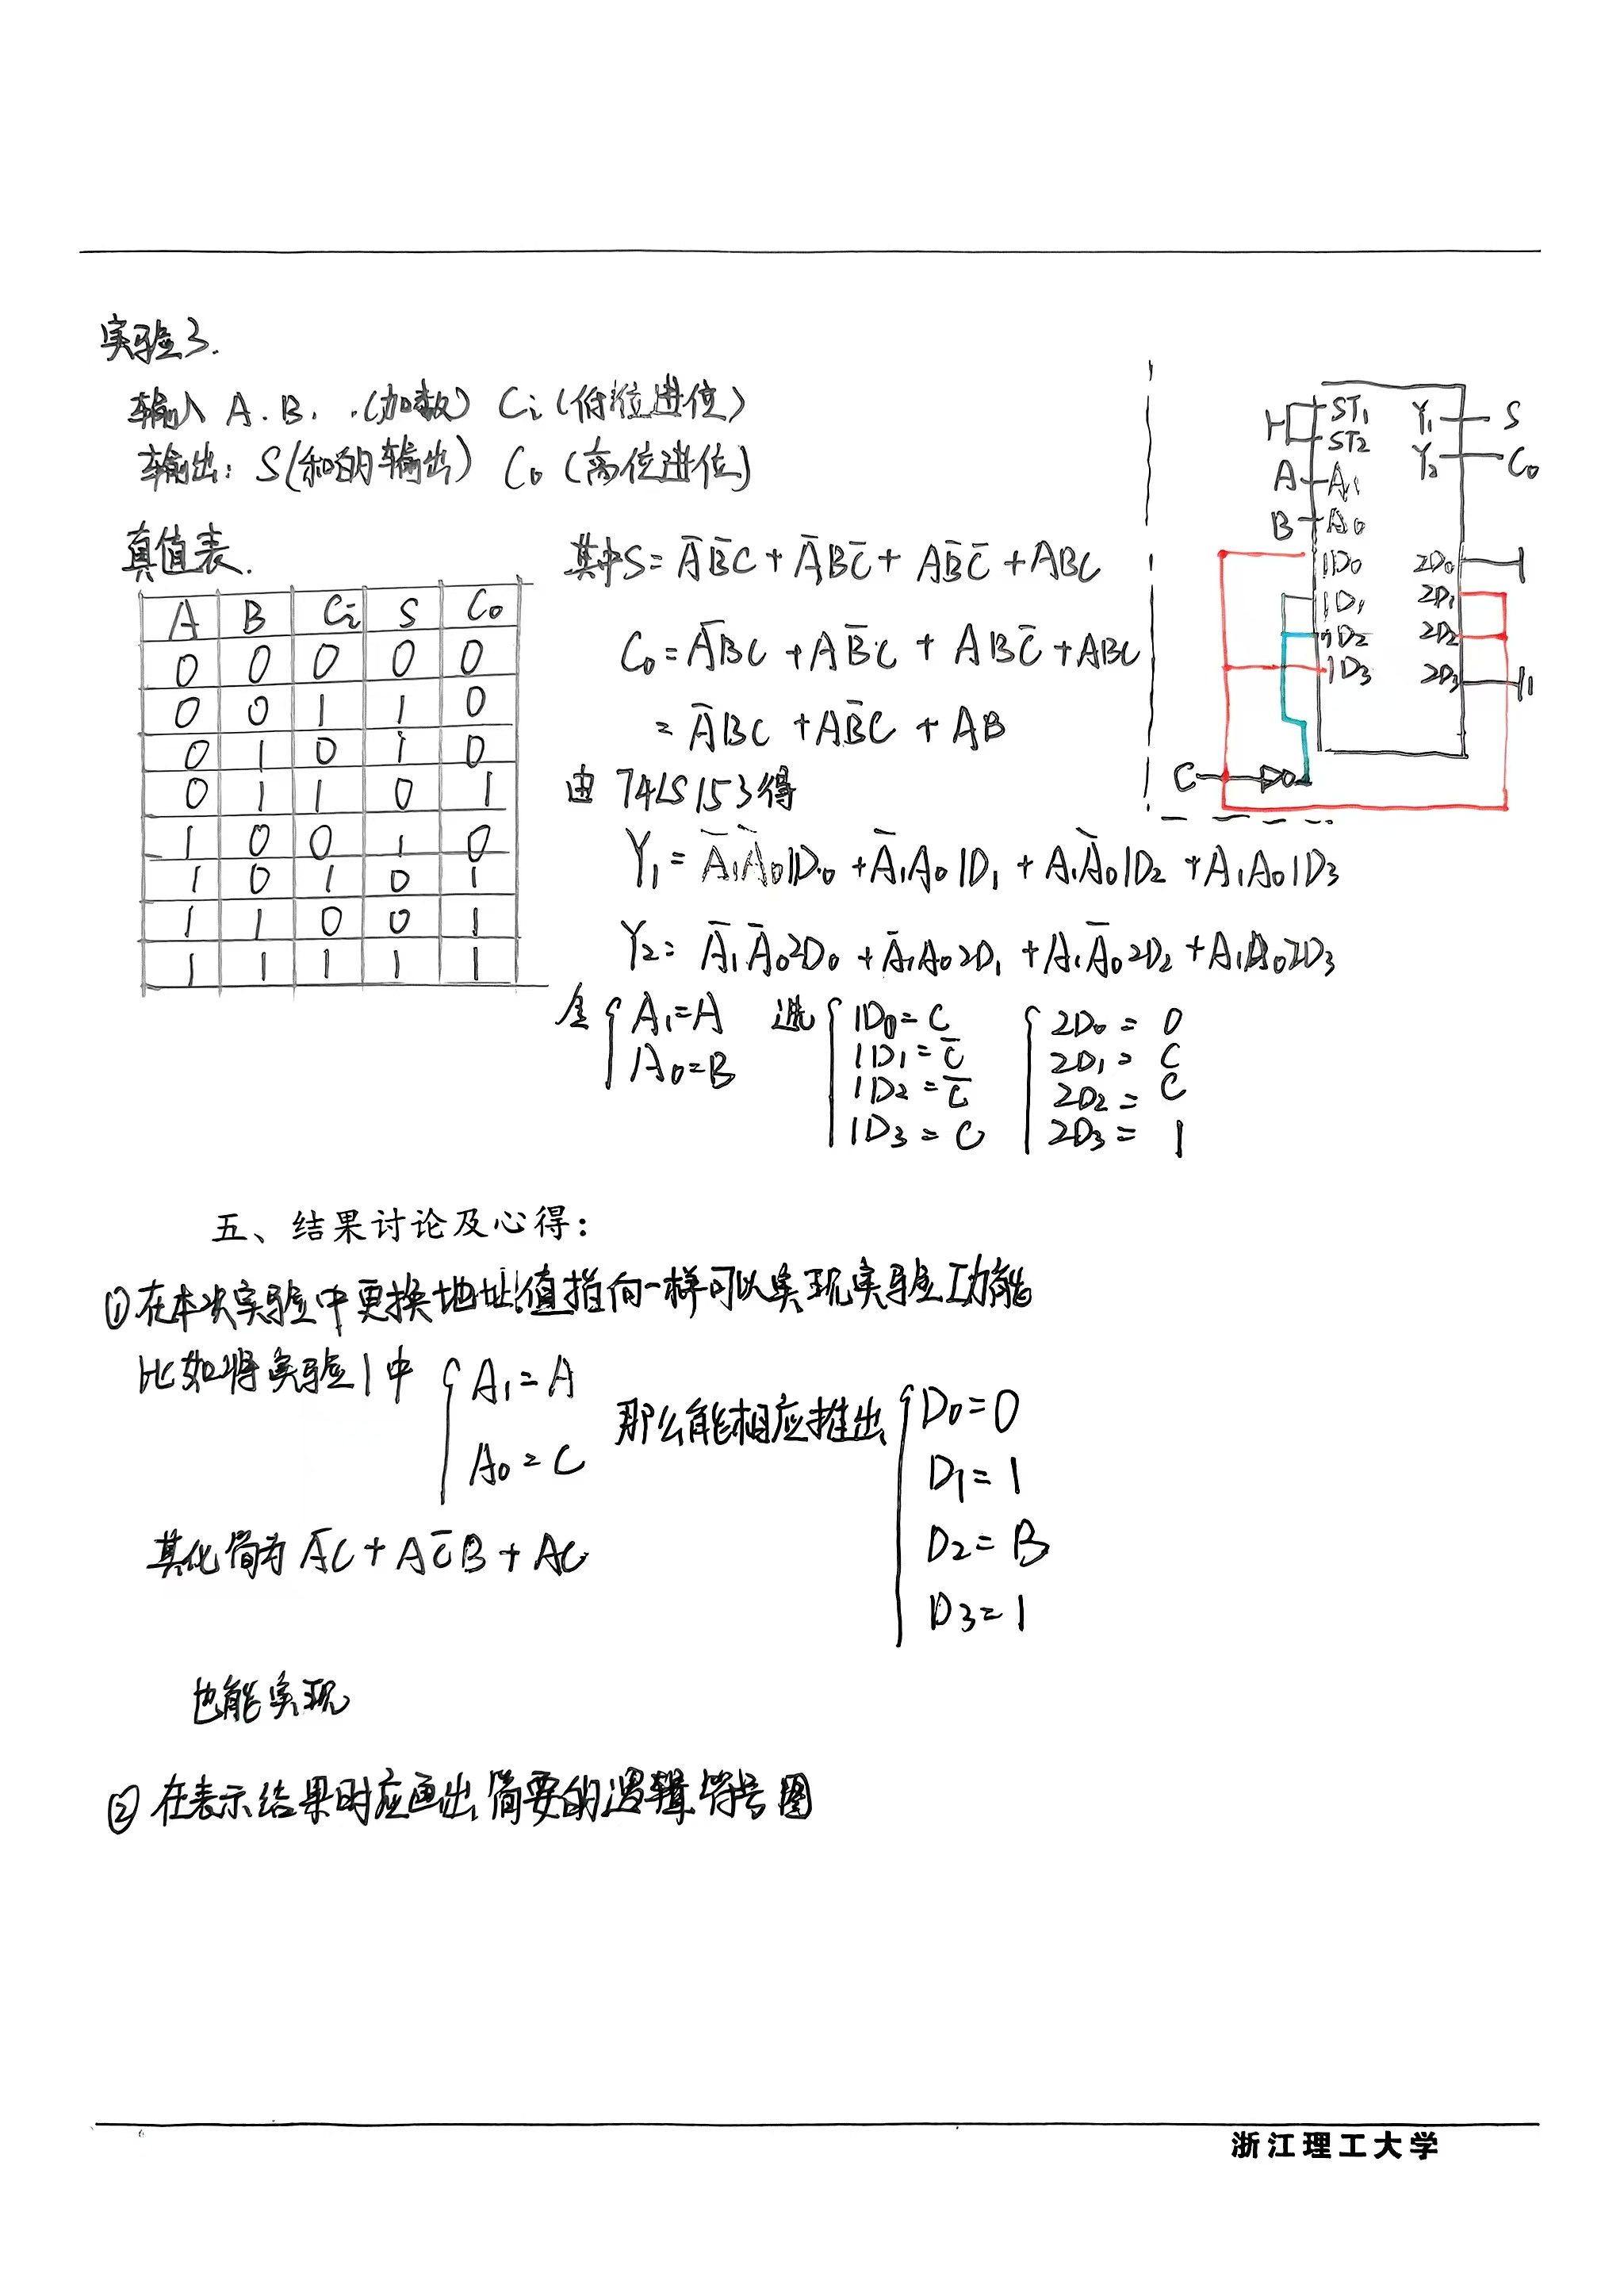 实验3.
输入 A.B. .(加数) Ci (低位进位)
输出: S(和的输出) C₀ (高位进位)
真值表.
A B Ci S C₀
0 0 0 0 0
0 0 1 1 0
0 1 0 1 0
0 1 1 0 1
1 0 0 1 0
1 0 1 0 1
1 1 0 0 1
1 1 1 1 1
其中S = A̅B̅C + A̅BC̅ + AB̅C̅ + ABC
C₀ = A̅BC + AB̅C + ABC̅ + ABC
= A̅BC + AB̅C + AB
由 74LS153得
Y₁ = A̅₁A̅₀1D₀ + A̅₁A₀1D₁ + A₁A̅₀1D₂ + A₁A₀1D₃
Y₂ = A̅₁A̅₀2D₀ + A̅₁A₀2D₁ + A₁A̅₀2D₂ + A₁A₀2D₃
令 { A₁=A
A₀=B
选 { 1D₀=C
1D₁=C̅
1D₂=C̅
1D₃=C
{ 2D₀=0
2D₁=C
2D₂=C
2D₃=1
H ST₁ Y₁ S
ST₂ Y₂ C₀
A A₁
B A₀
1D₀ 2D₀
1D₁ 2D₁
1D₂ 2D₂
1D₃ 2D₃ 1
C
五、结果讨论及心得:
① 在本次实验中更换地址值指向一样可以实现实验功能
比如将实验1中 { A₁=A
A₀=C
那么能相应推出 { D₀=0
D₁=1
D₂=B
D₃=1
其化简为 A̅C + AC̅B + AC
也能实现
② 在表示结果时应画出简要的逻辑符号图
浙江理工大学